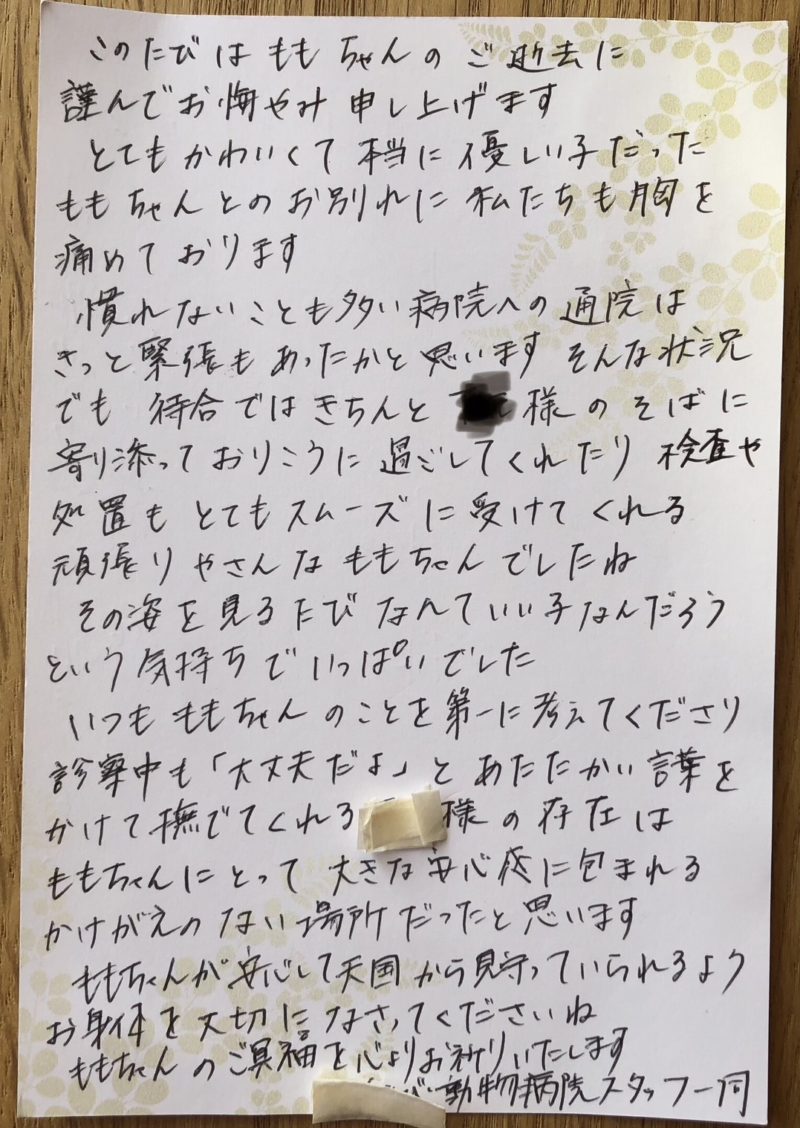 このたびはももちゃんのご逝去に
謹んでお悔やみ申し上げます
とてもかわいくて本当に優しい子だった
ももちゃんとのお別れに私たちも胸を
痛めております
慣れないことも多い病院への通院は
きっと緊張もあったかと思います そんな状況
でも 待合ではきちんと 様のそばに
寄り添っておりこうに過ごしてくれたり 検査や
処置もとてもスムーズに受けてくれる
頑張りやさんなももちゃんでしたね
その姿を見るたびなんていい子なんだろう
という気持ちでいっぱいでした
いつもももちゃんのことを第一に考えてくださり
診察中も「大丈夫だよ」とあたたかい言葉を
かけて撫でてくれる 様の存在は
ももちゃんにとって大きな安心感に包まれる
かけがえのない場所だったと思います
ももちゃんが安心して天国から見守っていられるよう
お身体を大切になさってくださいね
ももちゃんのご冥福を心よりお祈りいたします
動物病院スタッフ一同